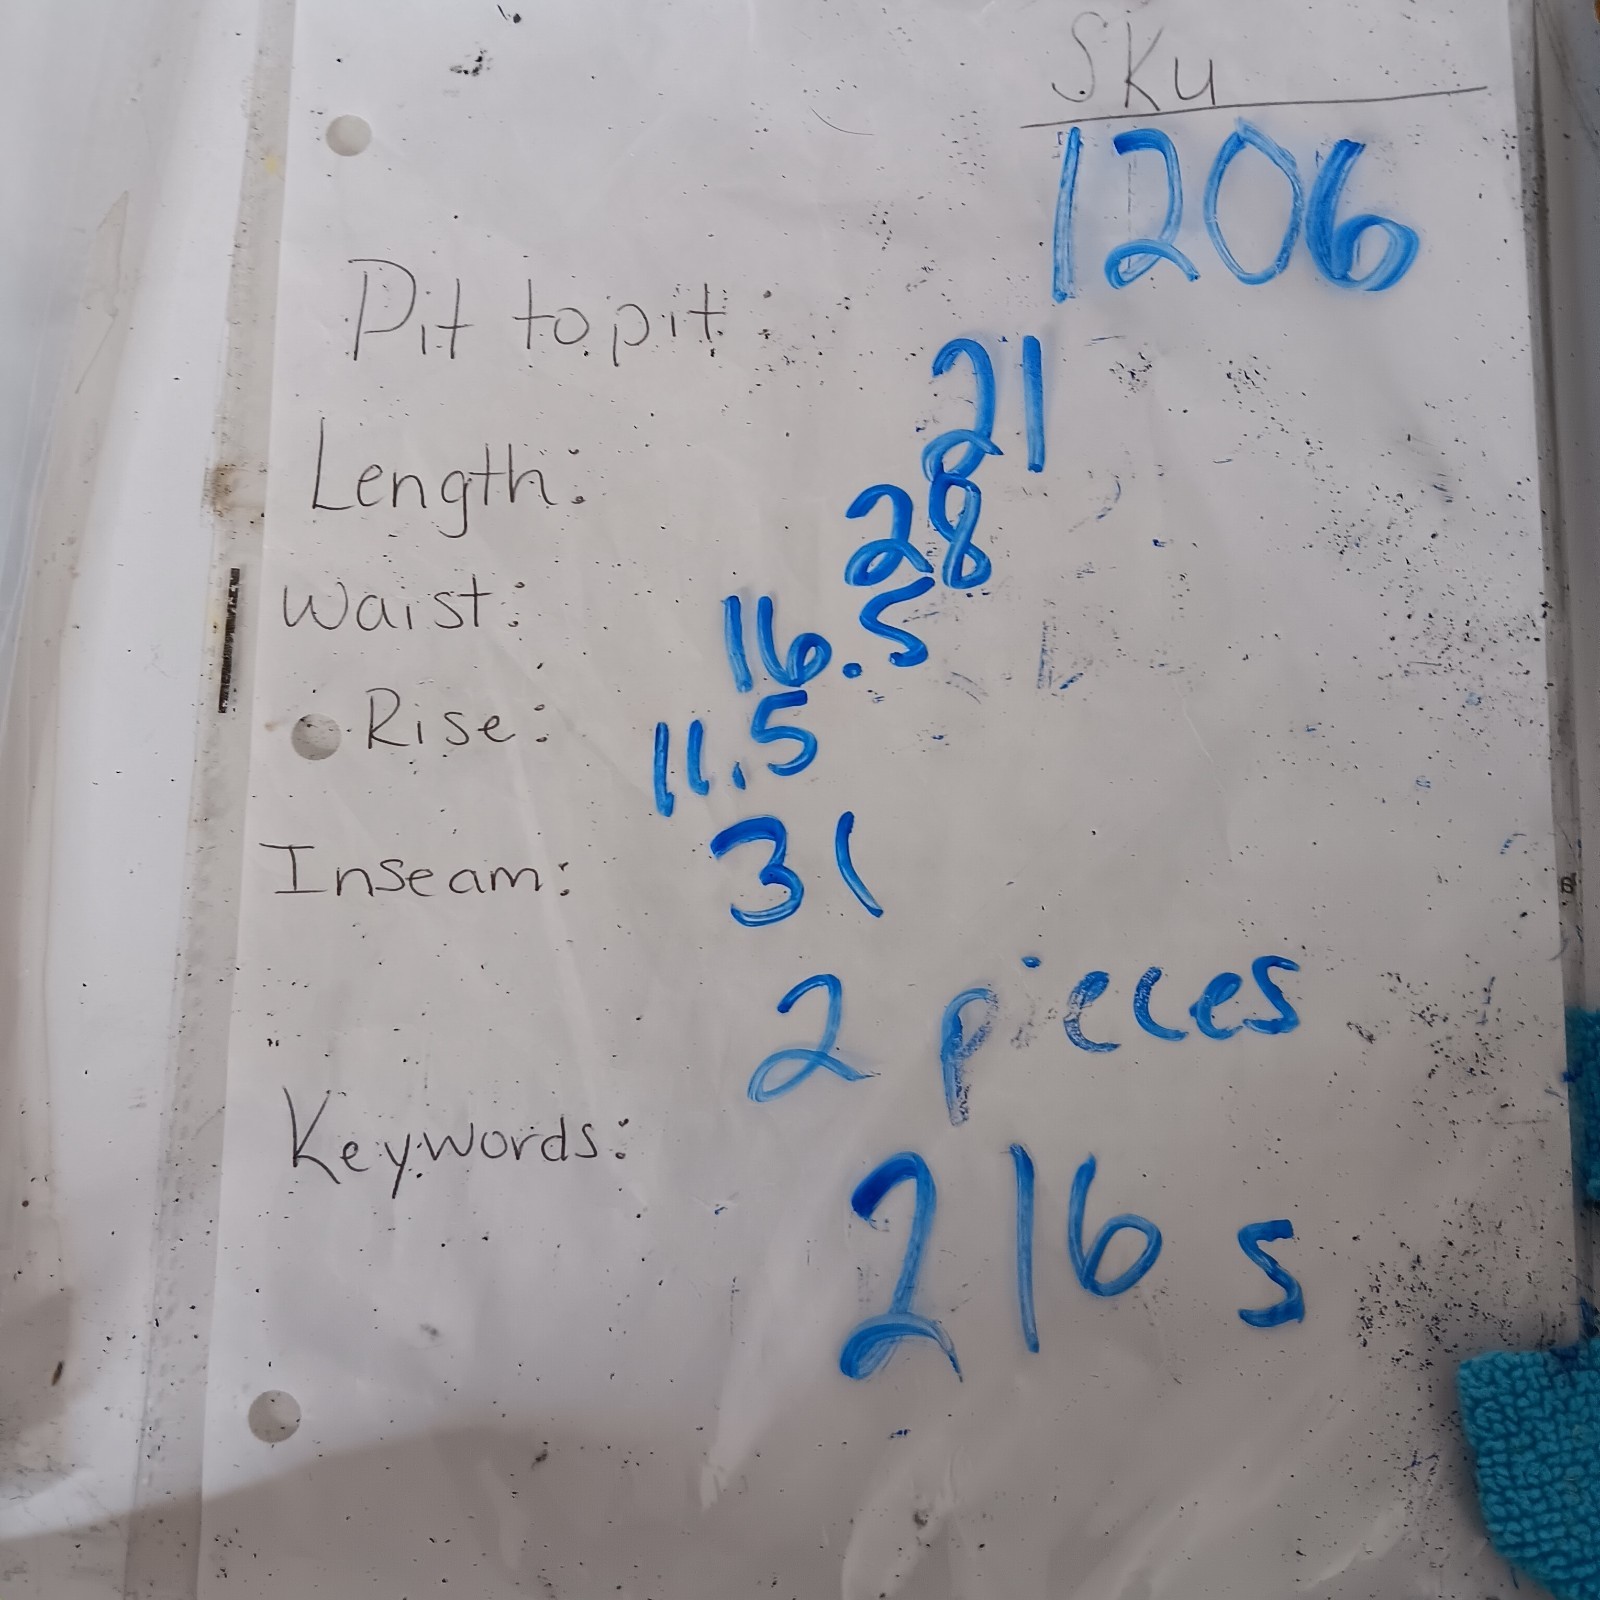 SKU
1206
Pit to pit: 21
Length: 28
Waist: 16.5
Rise: 11.5
Inseam: 31
2 pieces
Keywords:
216 s